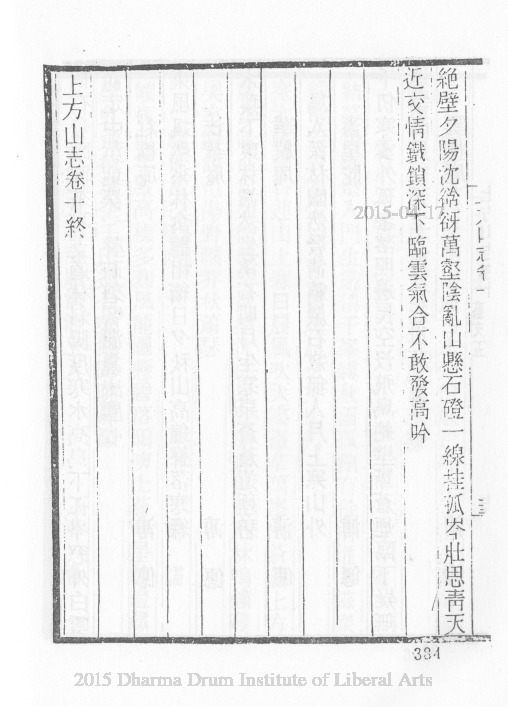 絶壁夕陽沈谽谺萬壑陰亂山懸石磴一線挂孤岑壯思靑天
近交情鐵鎖深下臨雲氣合不敢發高吟
上方山志卷十終
2015-04-17
384
2015 Dharma Drum Institute of Liberal Arts